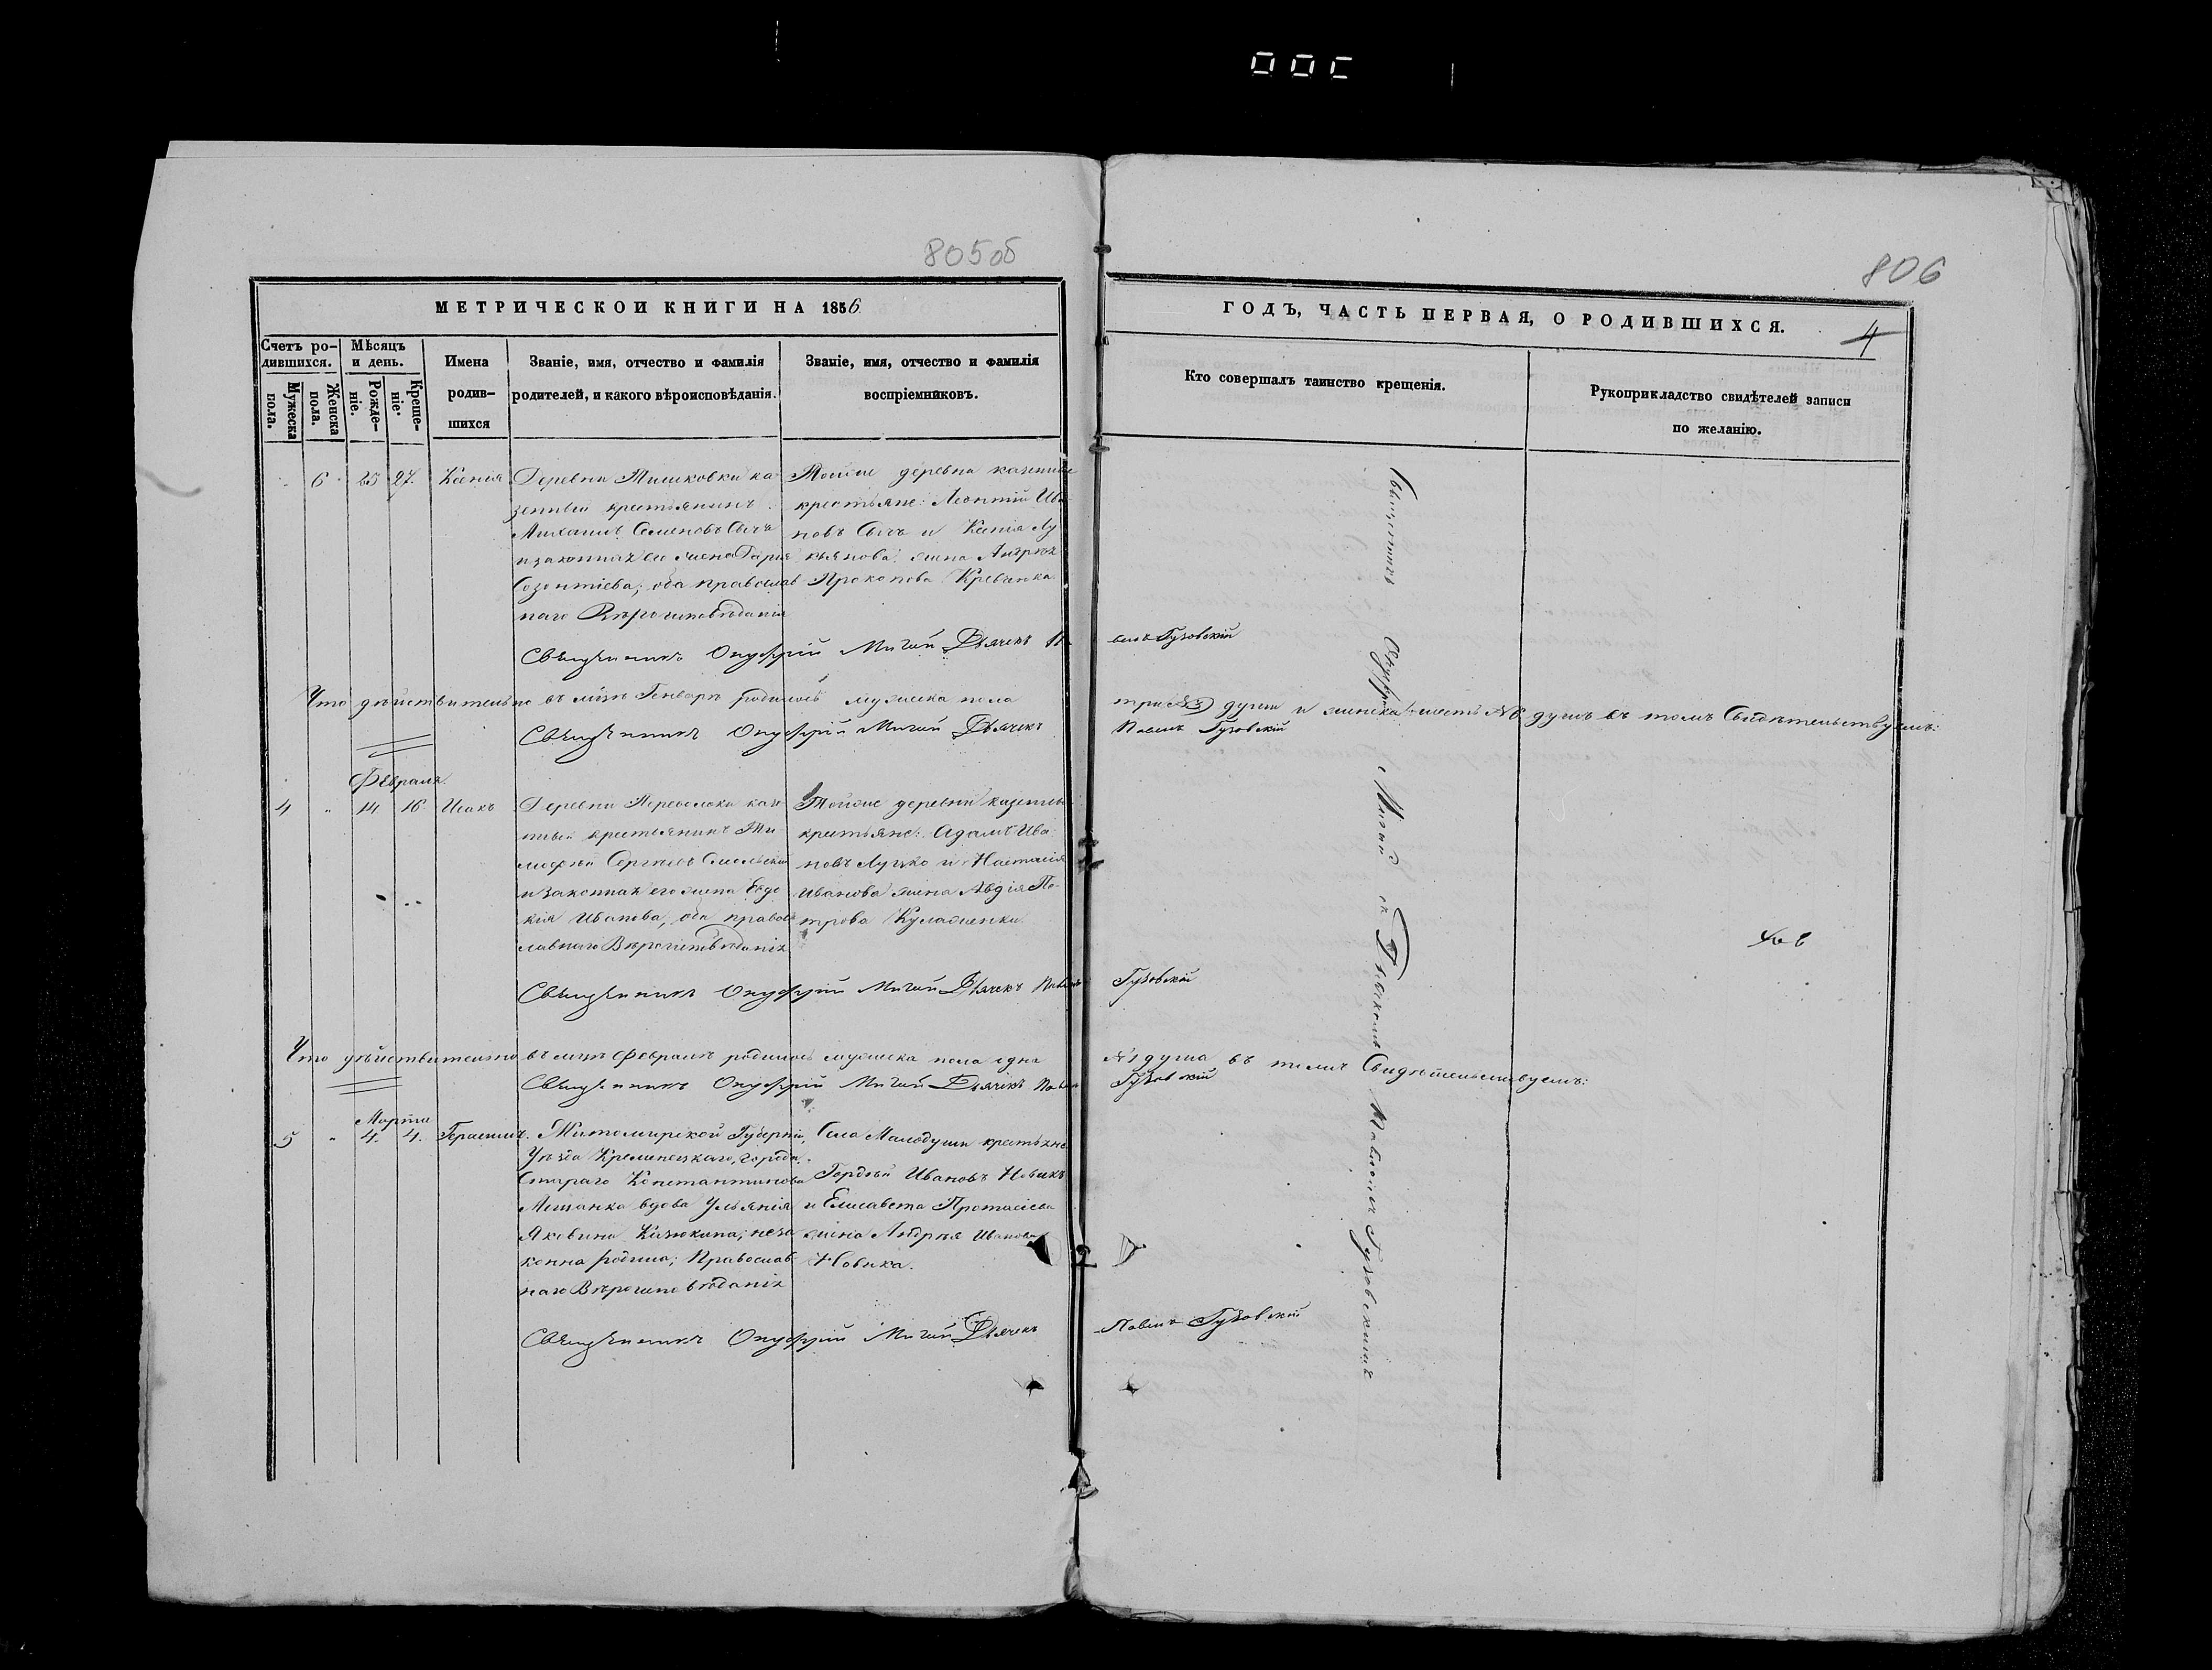 805об
806
МЕТРИЧЕСКОИ КНИГИ НА 1856
ГОДЪ, ЧАСТЬ ПЕРВАЯ, О РОДИВШИХСЯ.
4
Счетъ ро-
дившихся.
Мужеска
пола.
Женска
пола.
Мѣсяцъ
и день.
Рожде-
ніе.
Креще-
ніе.
Имена
родив-
шихся
Званіе, имя, отчество и фамилія
родителей, и какого вѣроисповѣданія.
Званіе, имя, отчество и фамилія
воспріемниковъ.
Кто совершалъ таинство крещенія.
Рукоприкладство свидѣтелей записи
по желанію.
6 25 27 Ксенія
Деревни Тишковки ка-
зенный крестьянинъ
Михаилъ Семеновъ Сычъ
и законная его жена Дарія
Созонтіева; оба православ
наго Вѣроисповѣданія
Тойже деревни казенные
крестьяне: Леонтій Ива
новъ Сычъ и Ксенія Лу
кьянова жена Андрея
Прокопова
Священникъ Онуфрій Мигай Дьячекъ Па
велъ Гузовскій
Что дѣйствительно въ мцѣ Генварѣ родилось мужеска пола
три №3 души и женска шесть №6 душъ въ томъ Свидѣтельствуемъ:
Священникъ Онуфрій Мигай Дьячекъ
Павелъ Гузовскій
Февраля
4 " 14 16 Исакъ
Деревни Переволоки казе
нный крестьянинъ Ти-
мофей Сергѣевъ
и законная его жена Евдо
кія Иванова, оба правос
лавнаго Вѣроисповѣданія
Тойже деревни казенные
крестьяне: Адамъ Ива
новъ Луцко и Настасія
Иванова жена Авдія Пе-
трова
Священникъ Онуфрій Мигай Дьячекъ Павелъ
Гузовскій
Что дѣйствительно въ мцѣ Февралѣ родилось мужеска пола одна
№1 душа въ томъ Свидѣтельствуемъ:
Священникъ Онуфрій Мигай Дьячекъ Павелъ
Гузовскій
Марта
5 " 4. 4. Герасимъ.
Житомирской Губерніи,
Уѣзда Кременецкаго, города
Стараго Константинова
Мещанка вдова Ульянія
Яковина Казюкина; неза
конна родила; Православ
наго Вѣроисповѣданія
Села Малодуши крестьяне
Гордѣй Ивановъ Новикъ
и Елисавета Протасіева
жена Андрея Иванова
Новика.
Священникъ Онуфрій Мигай Дьячекъ
Павелъ Гузовскій
Священникъ Онуфрій Мигай съ Дьячкомъ Павломъ Гузовскимъ